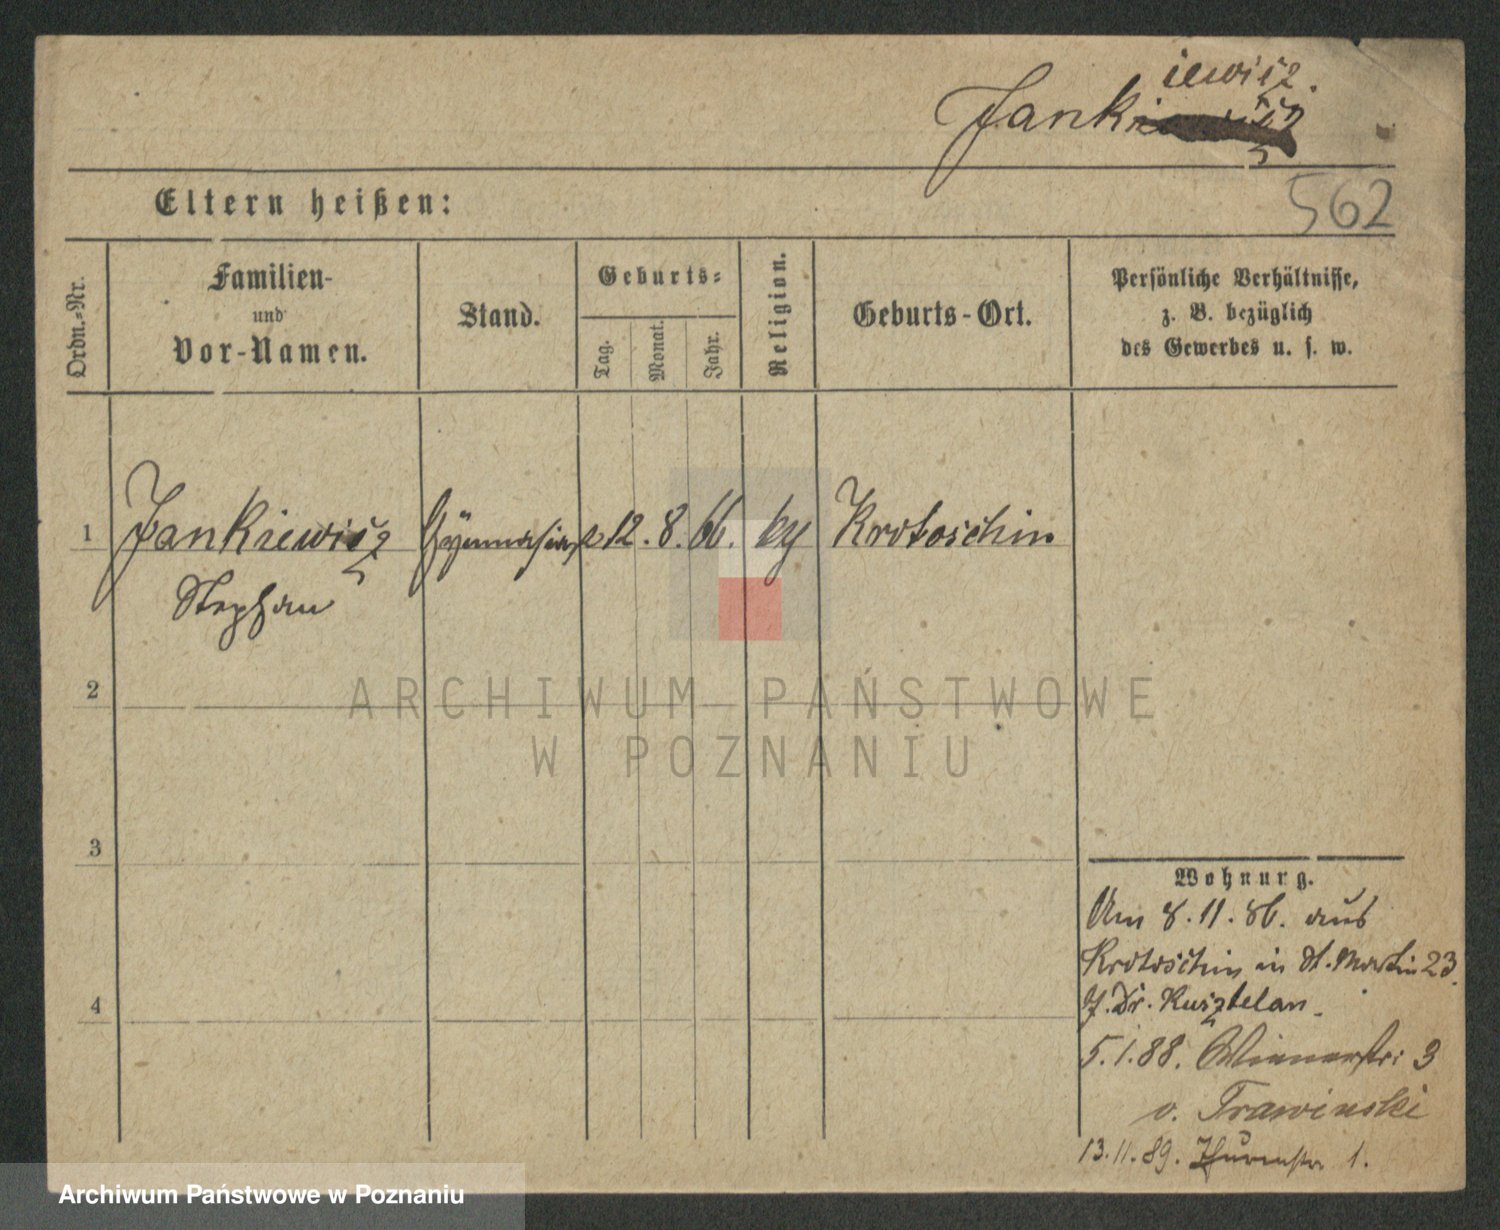 iewicz.
Jank
562
Eltern heißen:
Ordn.-Nr.
Familien-
und
Vor-Namen.
Stand.
Geburts-
Tag.
Monat.
Jahr.
Religion.
Geburts-Ort.
Persönliche Verhältnisse,
z. B. bezüglich
des Gewerbes u. s. w.
1 Jankiewicz Gymnasiast 12. 8. 66. Krotoschin
Stephan
2
3
4
Wohnung.
Am 8.11.86. aus
Krotoschin in St. Martin 23.
Dr. Kusztelan
5.1.88. Wienerstr: 3
v. Trawinski
13.11.89. 1.
ARCHIWUM PAŃSTWOWE
W POZNANIU
Archiwum Państwowe w Poznaniu